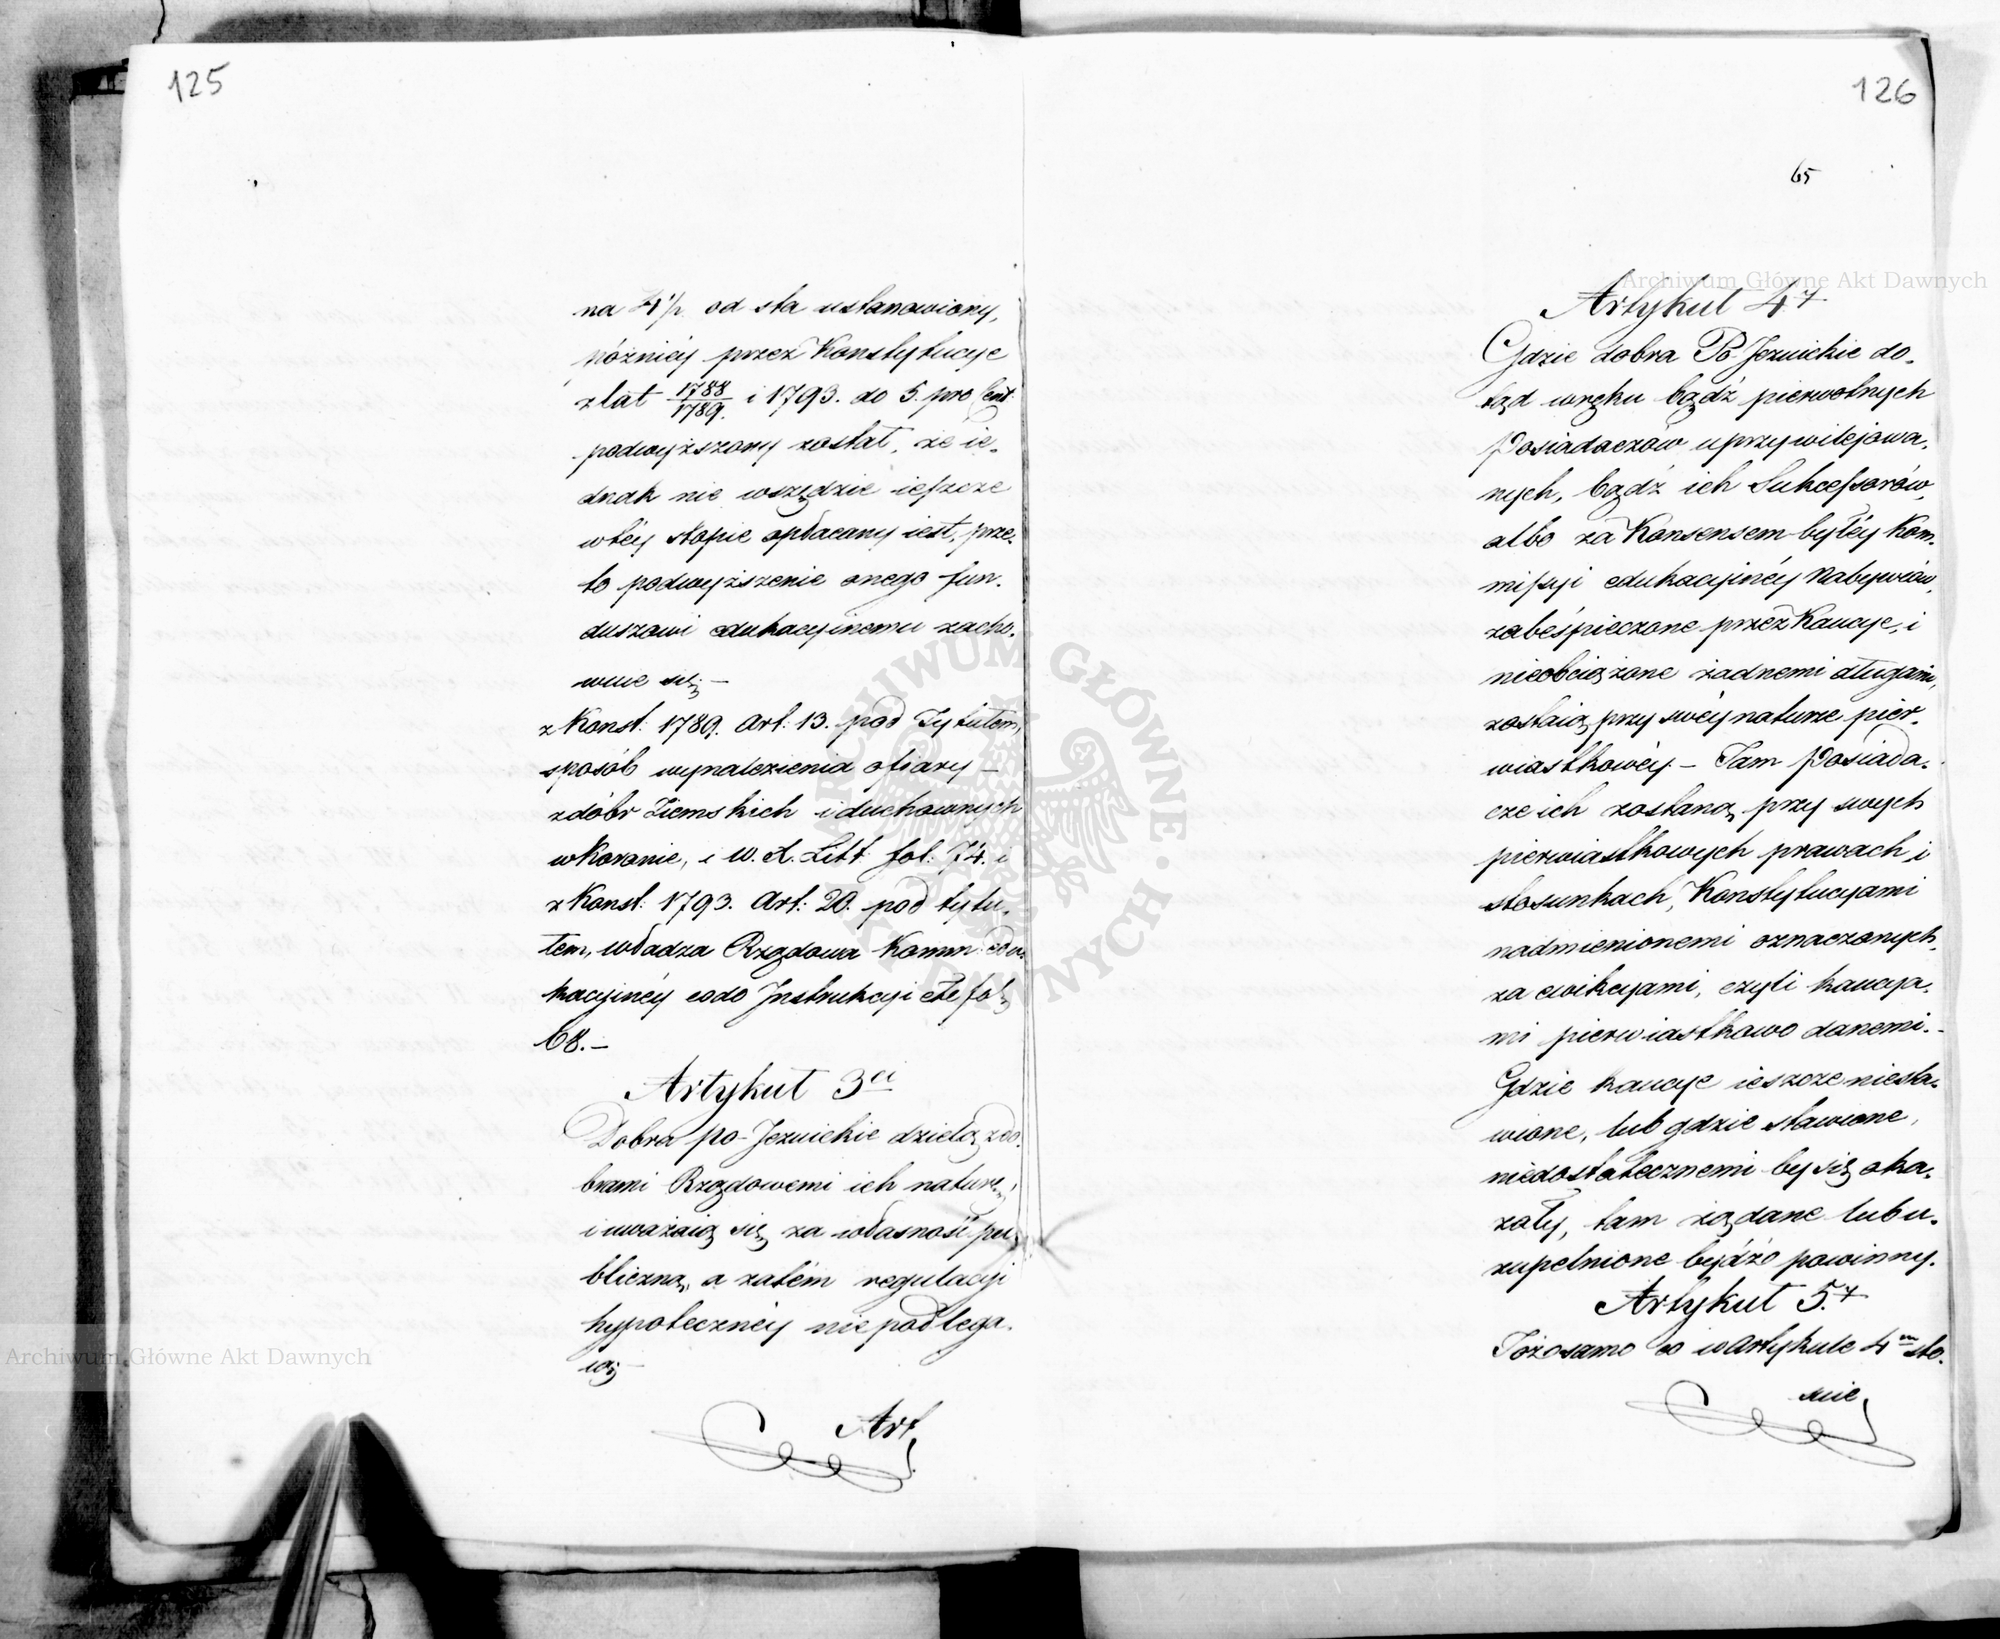 125
na 4 1/2 od sta ustanowiony,
późniéy przez Konstytucye
z lat 1788/1789. i 1793. do 5. pro Cent:
podwyższony został, że ie-
dnak nie wszędzie ieszcze
w téy stopie opłacany iest, prze-
to podwyższenie onego fun-
duszowi edukacyinemu zacho-
wuie się. –
z Konst: 1789. Art: 13. pod Tytułem,
sposób wynalezienia ofiary –
z dóbr Ziemskich i duchownych
w Koronie, i W. X. Litt: fol: 74. i
z Konst: 1793. Art: 20. pod tytu-
łem, władza Rządowa Komm: edu-
kacyinéy co do Instrukcyi etc fol:
68. –
Artykuł 3ci
Dobra po-Jezuickie dzielą z do-
brami Rządowemi ich naturę,
i uważaią się za własność pu-
bliczną, a zatém regulacyi
hypoteczney nie podlega-
ią –
Art.
126
65
Artykuł 4ty
Gdzie dobra Po-Jezuickie do-
tąd w ręku bądź pierwotnych
Posiadaczów uprzywilejowa-
nych, bądź ich Sukcessorów,
albo za Konsensem byłéy Kom-
missyi edukacyinéy Nabywców,
zabéśpieczone przez Kaucye, i
nieobciążone żadnemi długami,
zostaią przy swéy naturze pier-
wiastkowéy – Tam Posiada-
cze ich zostaną przy swych
pierwiastkowych prawach i
stosunkach, Konstytucyami
nadmienionemi oznaczonych,
za ewikcyami, czyli kaucya-
mi pierwiastkowo danemi. –
Gdzie kaucye ieszcze niesta-
wione, lub gdzie stawione,
niedostatecznemi by się oka-
zały, tam żądane lub u-
zupełnione bydźo powinny.
Artykuł 5ty
Tożsamo co w Artykule 4m sto-
suie
Archiwum Główne Akt Dawnych
Archiwum Główne Akt Dawnych
ARCHIWUM GŁÓWNE AKT DAWNYCH